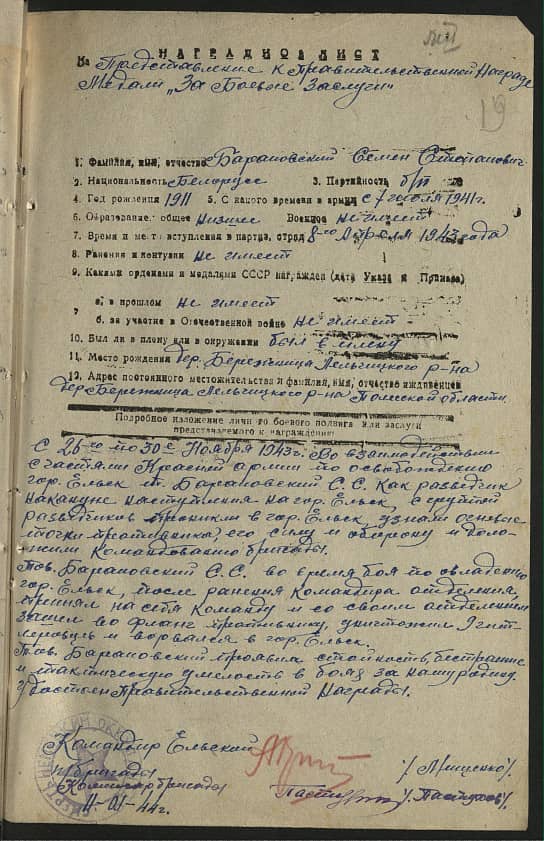 НАГРАДНОЙ ЛИСТ
На Представление к Правительственной Награде
Медали „За Боевые Заслуги"
19
1. Фамилия, имя, отчество Барановский Семен Степанович
2. Национальность Белорусс 3. Партийность б/п
4. Год рождения 1911 5. С какого времени в армии с 7 июля 1941г.
6. Образование: общее Низшее Военное не имеет
7. Время и место вступления в партиз. отряд 8-го Апреля 1943 года
8. Ранения и контузии Не имеет
9. Какими орденами и медалями СССР награжден (дата Указа и Приказа)
а. в прошлом не имеет
б. за участие в Отечественной войне не имеет
10. Был ли в плену или в окружении был в плену
11. Место рождения дер. Бережница Лельчицкого р-на
12. Адрес постоянного местожительства и фамилия, имя, отчество иждивенцев
дер. Бережница Лельчицкого р-на Полесской области.
Подробное изложение личного боевого подвига или заслуги
представляемого к награждению
С 26-го по 30е Ноября 1943г. Во взаимодействии
с частями Красной армии по освобождению
гор. Ельск т. Барановский С.С. как разведчик
накануне наступления на гор. Ельск, с группой
разведчиков проникли в гор. Ельск, узнали огневые
точки противника, его силу и оборону и доло-
жили командованию бригады.
Тов. Барановский С.С. во время боя по овладению
гор. Ельск, после ранения командира отделения,
принял на себя команду и со своим отделением
зашел во фланг противнику, уничтожил 9 гит-
леровцев и ворвался в гор. Ельск.
Тов. Барановский проявил стойкость, бесстрашие
и тактическую умелость в боях за нашу родину.
Удостоен Правительственной Награды.
Командир Ельской
п/бригады /Мищенко/.
Комиссар бригады /Пастухов/
11-01-44г.